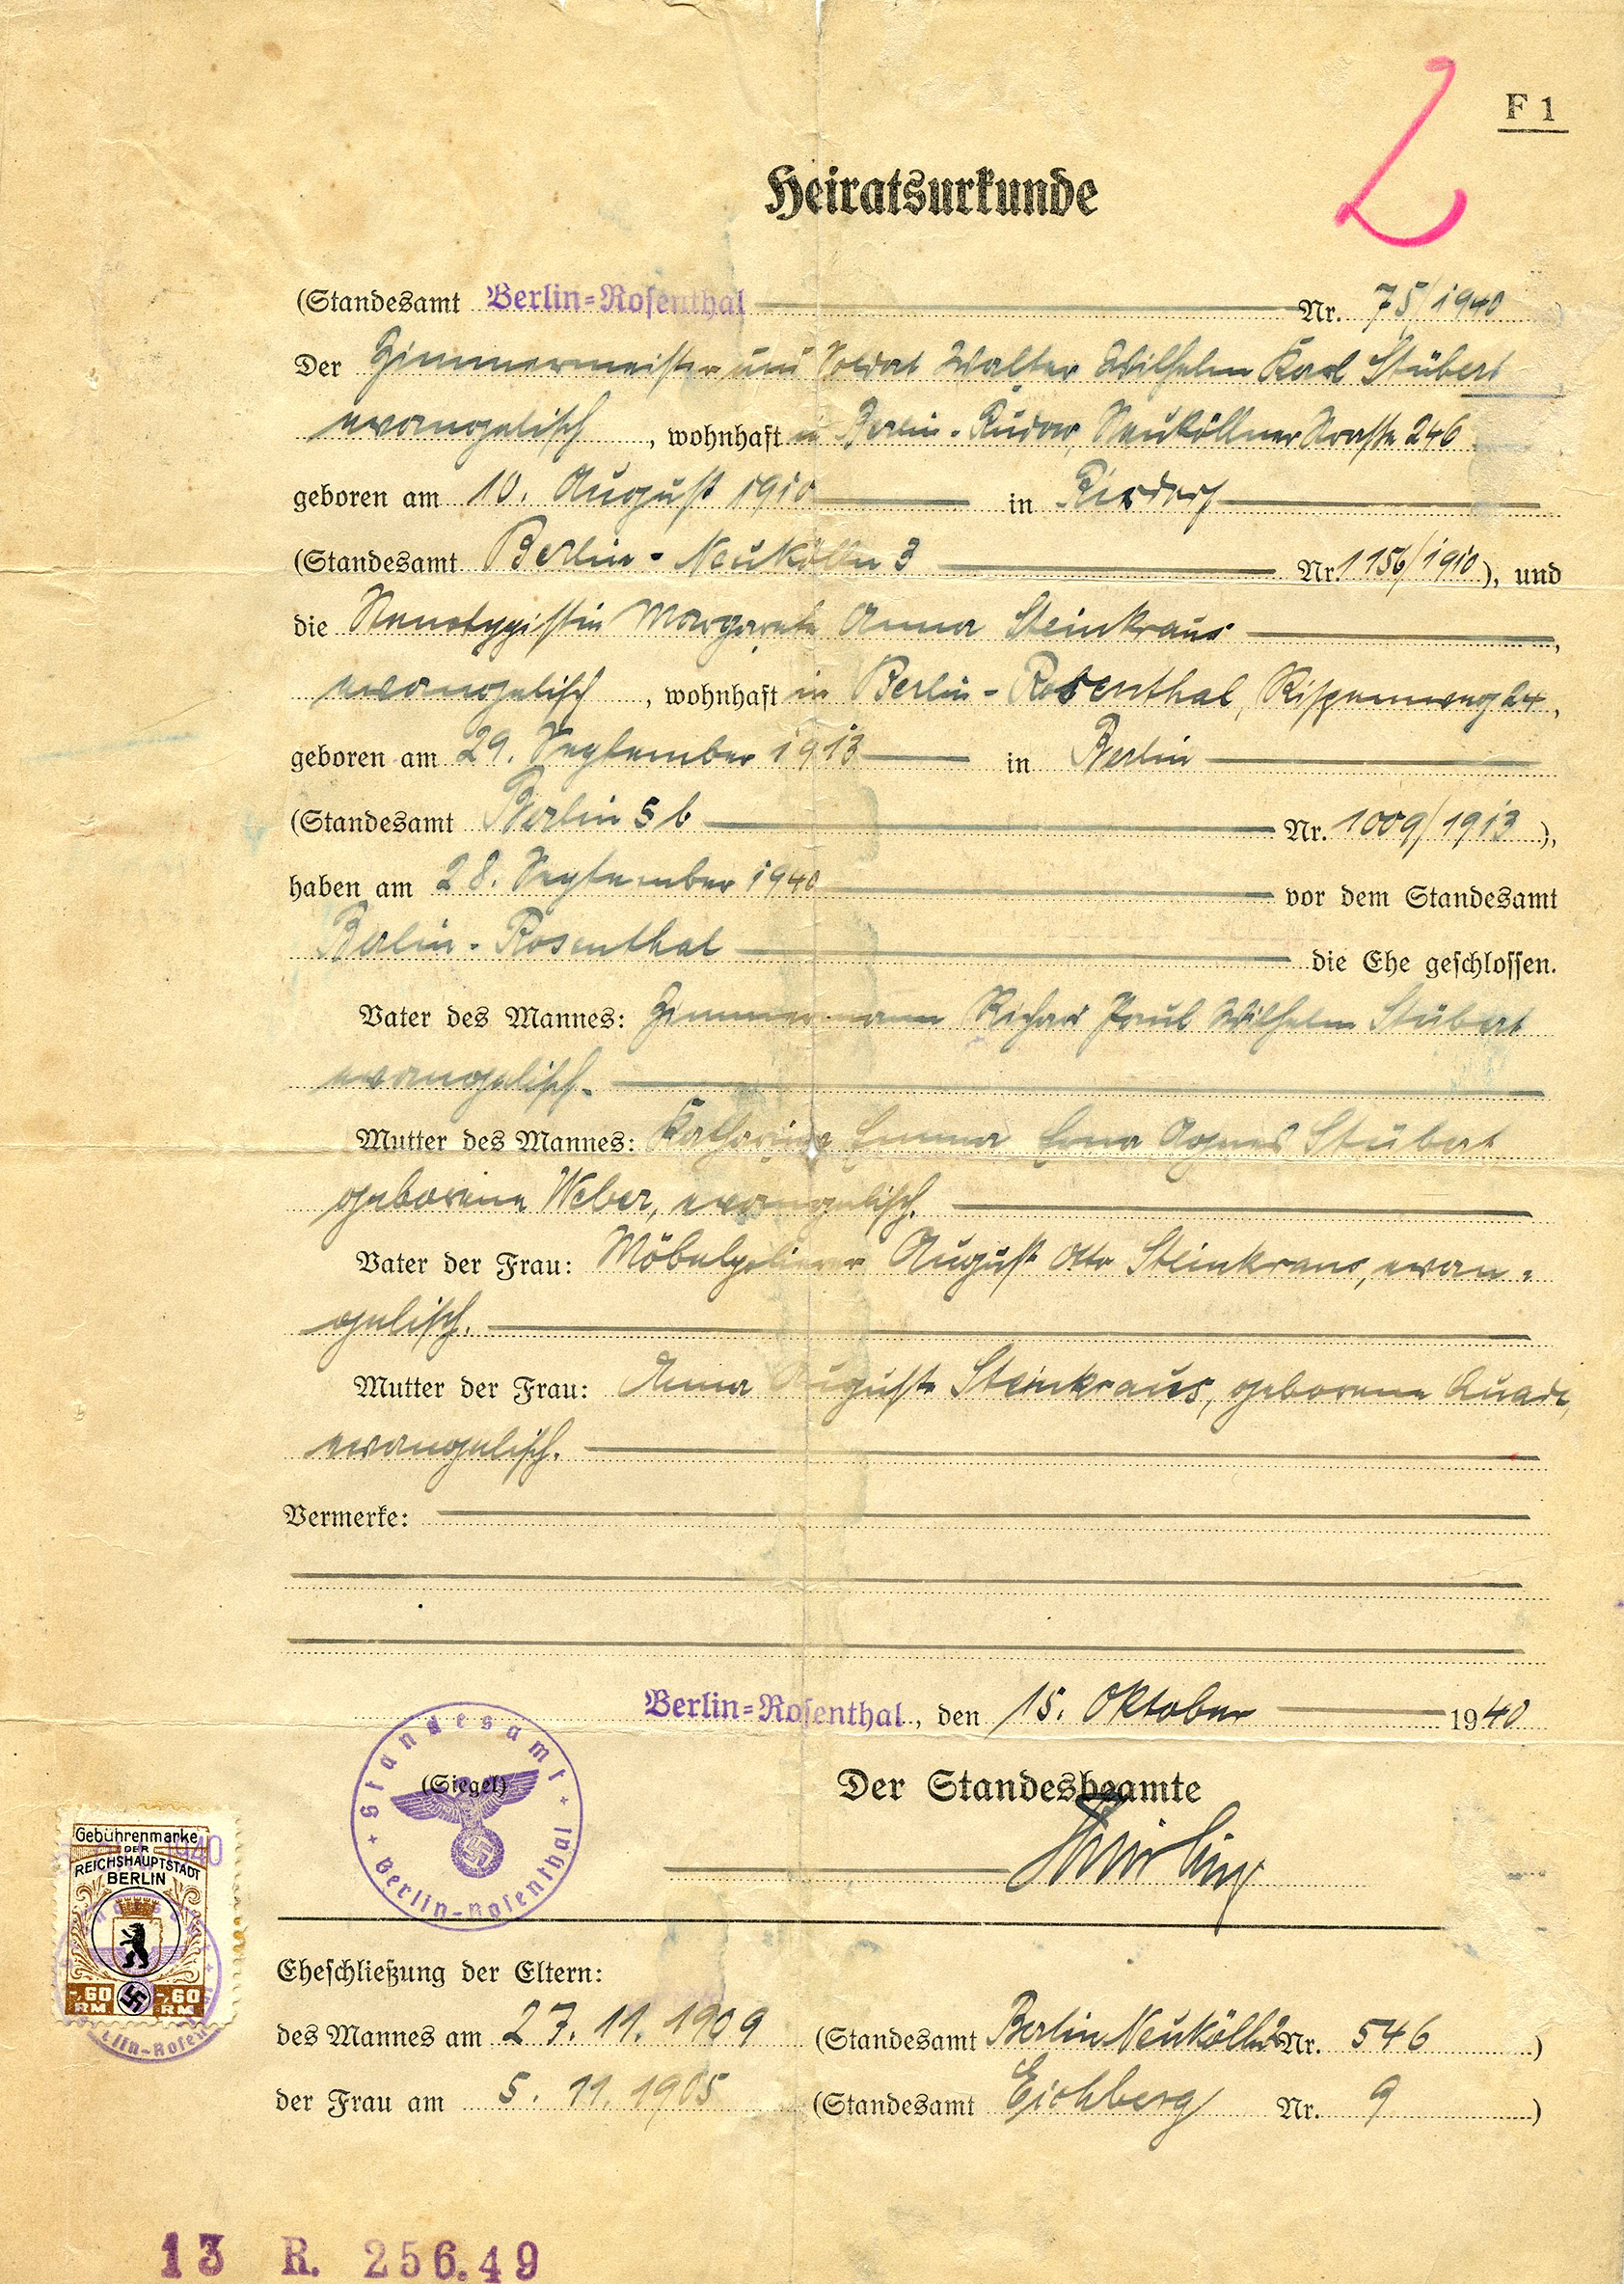 F 1
2
Heiratsurkunde
(Standesamt Berlin=Rosenthal Nr. 75/1940 )
Der Zimmermeister und Soldat Walter Wilhelm Karl Stübert
evangelisch, wohnhaft in Berlin-Rudow, Neuköllner Strasse 246
geboren am 10. August 1910 in Rixdorf
(Standesamt Berlin-Neukölln 3 Nr. 1156/1910), und
die Stenotypistin Margarete Anna Steinkraus,
evangelisch, wohnhaft in Berlin-Rosenthal, Rispenweg 24,
geboren am 29. September 1913 in Berlin
(Standesamt Berlin 5b Nr. 1009/1913),
haben am 28. September 1940 vor dem Standesamt
Berlin-Rosenthal die Ehe geschlossen.
Vater des Mannes: Zimmermann Richard Paul Wilhelm Stübert
evangelisch.
Mutter des Mannes: Katharina Emma Agnes Stübert
geborene Weber, evangelisch.
Vater der Frau: Möbelpolierer August Otto Steinkraus, evan-
gelisch.
Mutter der Frau: Anna Auguste Steinkraus, geborene Quade,
evangelisch.
Vermerke:
Berlin=Rosenthal, den 15. Oktober 1940
Standesamt
(Siegel)
Berlin-Rosenthal
Der Standesbeamte
Gebührenmarke
DER
REICHSHAUPTSTADT
BERLIN
-.60 RM -.60 RM
Eheschließung der Eltern:
des Mannes am 27. 11. 1909 (Standesamt Berlin Neukölln 2 Nr. 546 )
der Frau am 5. 11. 1905 (Standesamt Eichberg Nr. 9 )
13 R. 256.49